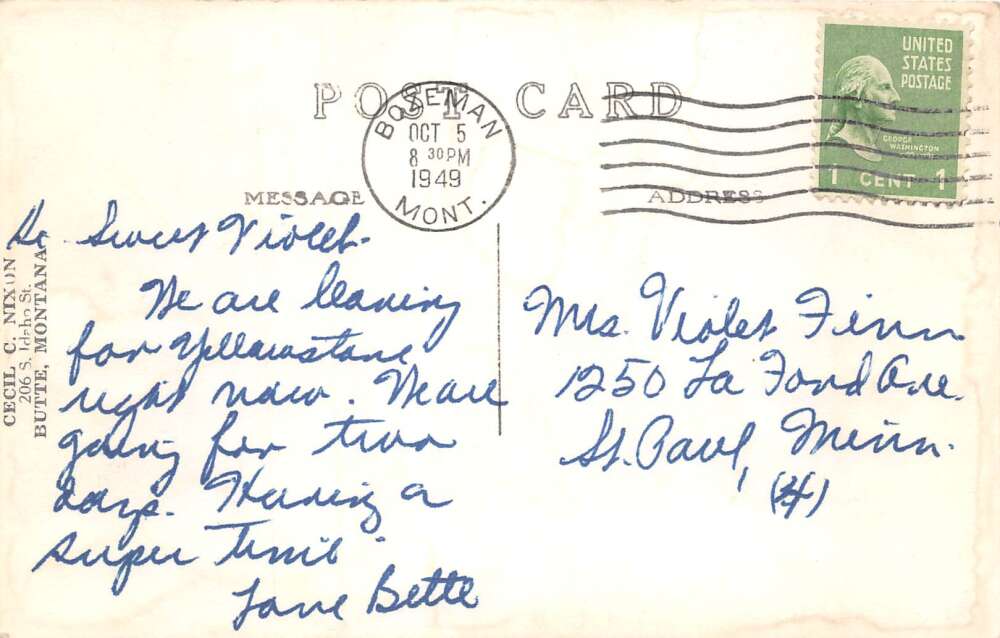 POST CARD
BOZEMAN
OCT 5
8 30 PM
1949
MONT.
UNITED
STATES
POSTAGE
GEORGE
WASHINGTON
1 CENT 1
MESSAGE
ADDRESS
CECIL C. NIXON
206 S. Idaho St.
BUTTE, MONTANA
Sweet Violet-
We are leaving
for Yellowstone
right now. We are
going for two
days. Having a
super time
Love Bette
Mrs. Violet Finn
1250 La Fond Ave.
St. Paul, Minn.
(4)